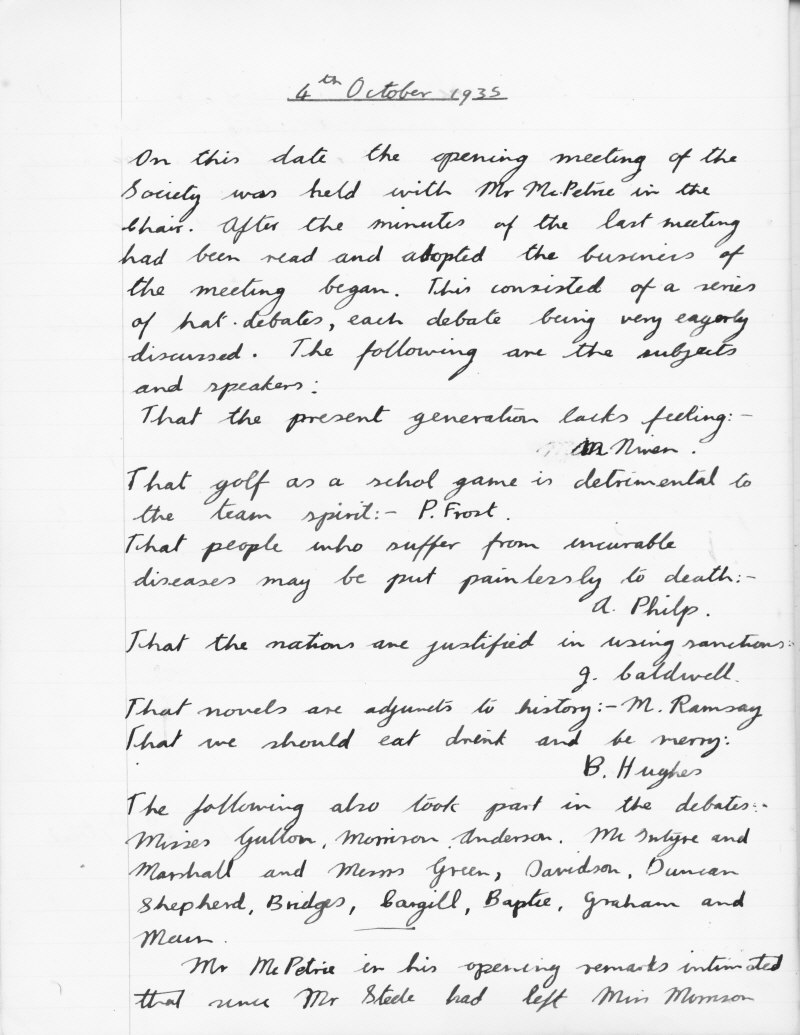 4th October 1935
On this date the opening meeting of the
Society was held with Mr McPetrie in the
Chair. After the minutes of the last meeting
had been read and adopted the business of
the meeting began. This consisted of a series
of hat-debates, each debate being very eagerly
discussed. The following are the subjects
and speakers:
That the present generation lacks feeling:-
M Niven.
That golf as a schol game is detrimental to
the team spirit:- P. Frost.
That people who suffer from incurable
diseases may be put painlessly to death:-
A. Philp.
That the nations are justified in using sanctions:-
J. Caldwell.
That novels are adjuncts to history:- M. Ramsay
That we should eat drink and be merry:
B. Hughes
The following also took part in the debates:-
Misses Gullon, Morrison, Anderson. McIntyre and
Marshall and Messrs Green, Davidson, Duncan
Shepherd, Bridges, Cargill, Baptie, Graham and
Mr McPetrie in his opening remarks intimated
that since Mr Steele had left Miss Morrison